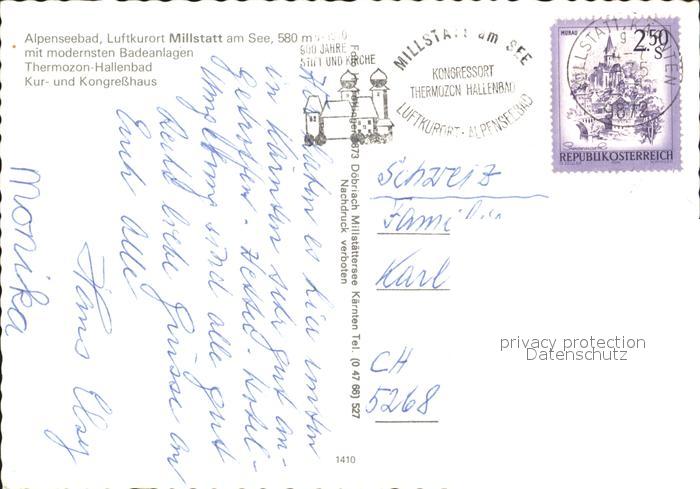 Alpenseebad, Luftkurort Millstatt am See, 580 m
mit modernsten Badeanlagen
Thermozon-Hallenbad
Kur- und Kongreßhaus
900 JAHRE
STIFT UND KIRCHE
MILLSTATT am SEE
KONGRESSORT
THERMOZON HALLENBAD
LUFTKURORT - ALPENSEEBAD
MURAU
2.50
S
9872
REPUBLIK ÖSTERREICH
es hier unten
in Kärnten sehr gut
getroffen
sind alle gut
bald liebe Grüsse an
Euch alle
Hans Elsy
Monika
Döbriach Millstättersee Kärnten Tel. (0 47 66) 527
Nachdruck verboten
Schweiz
Familie
Karl
CH
5268
privacy protection
Datenschutz
1410